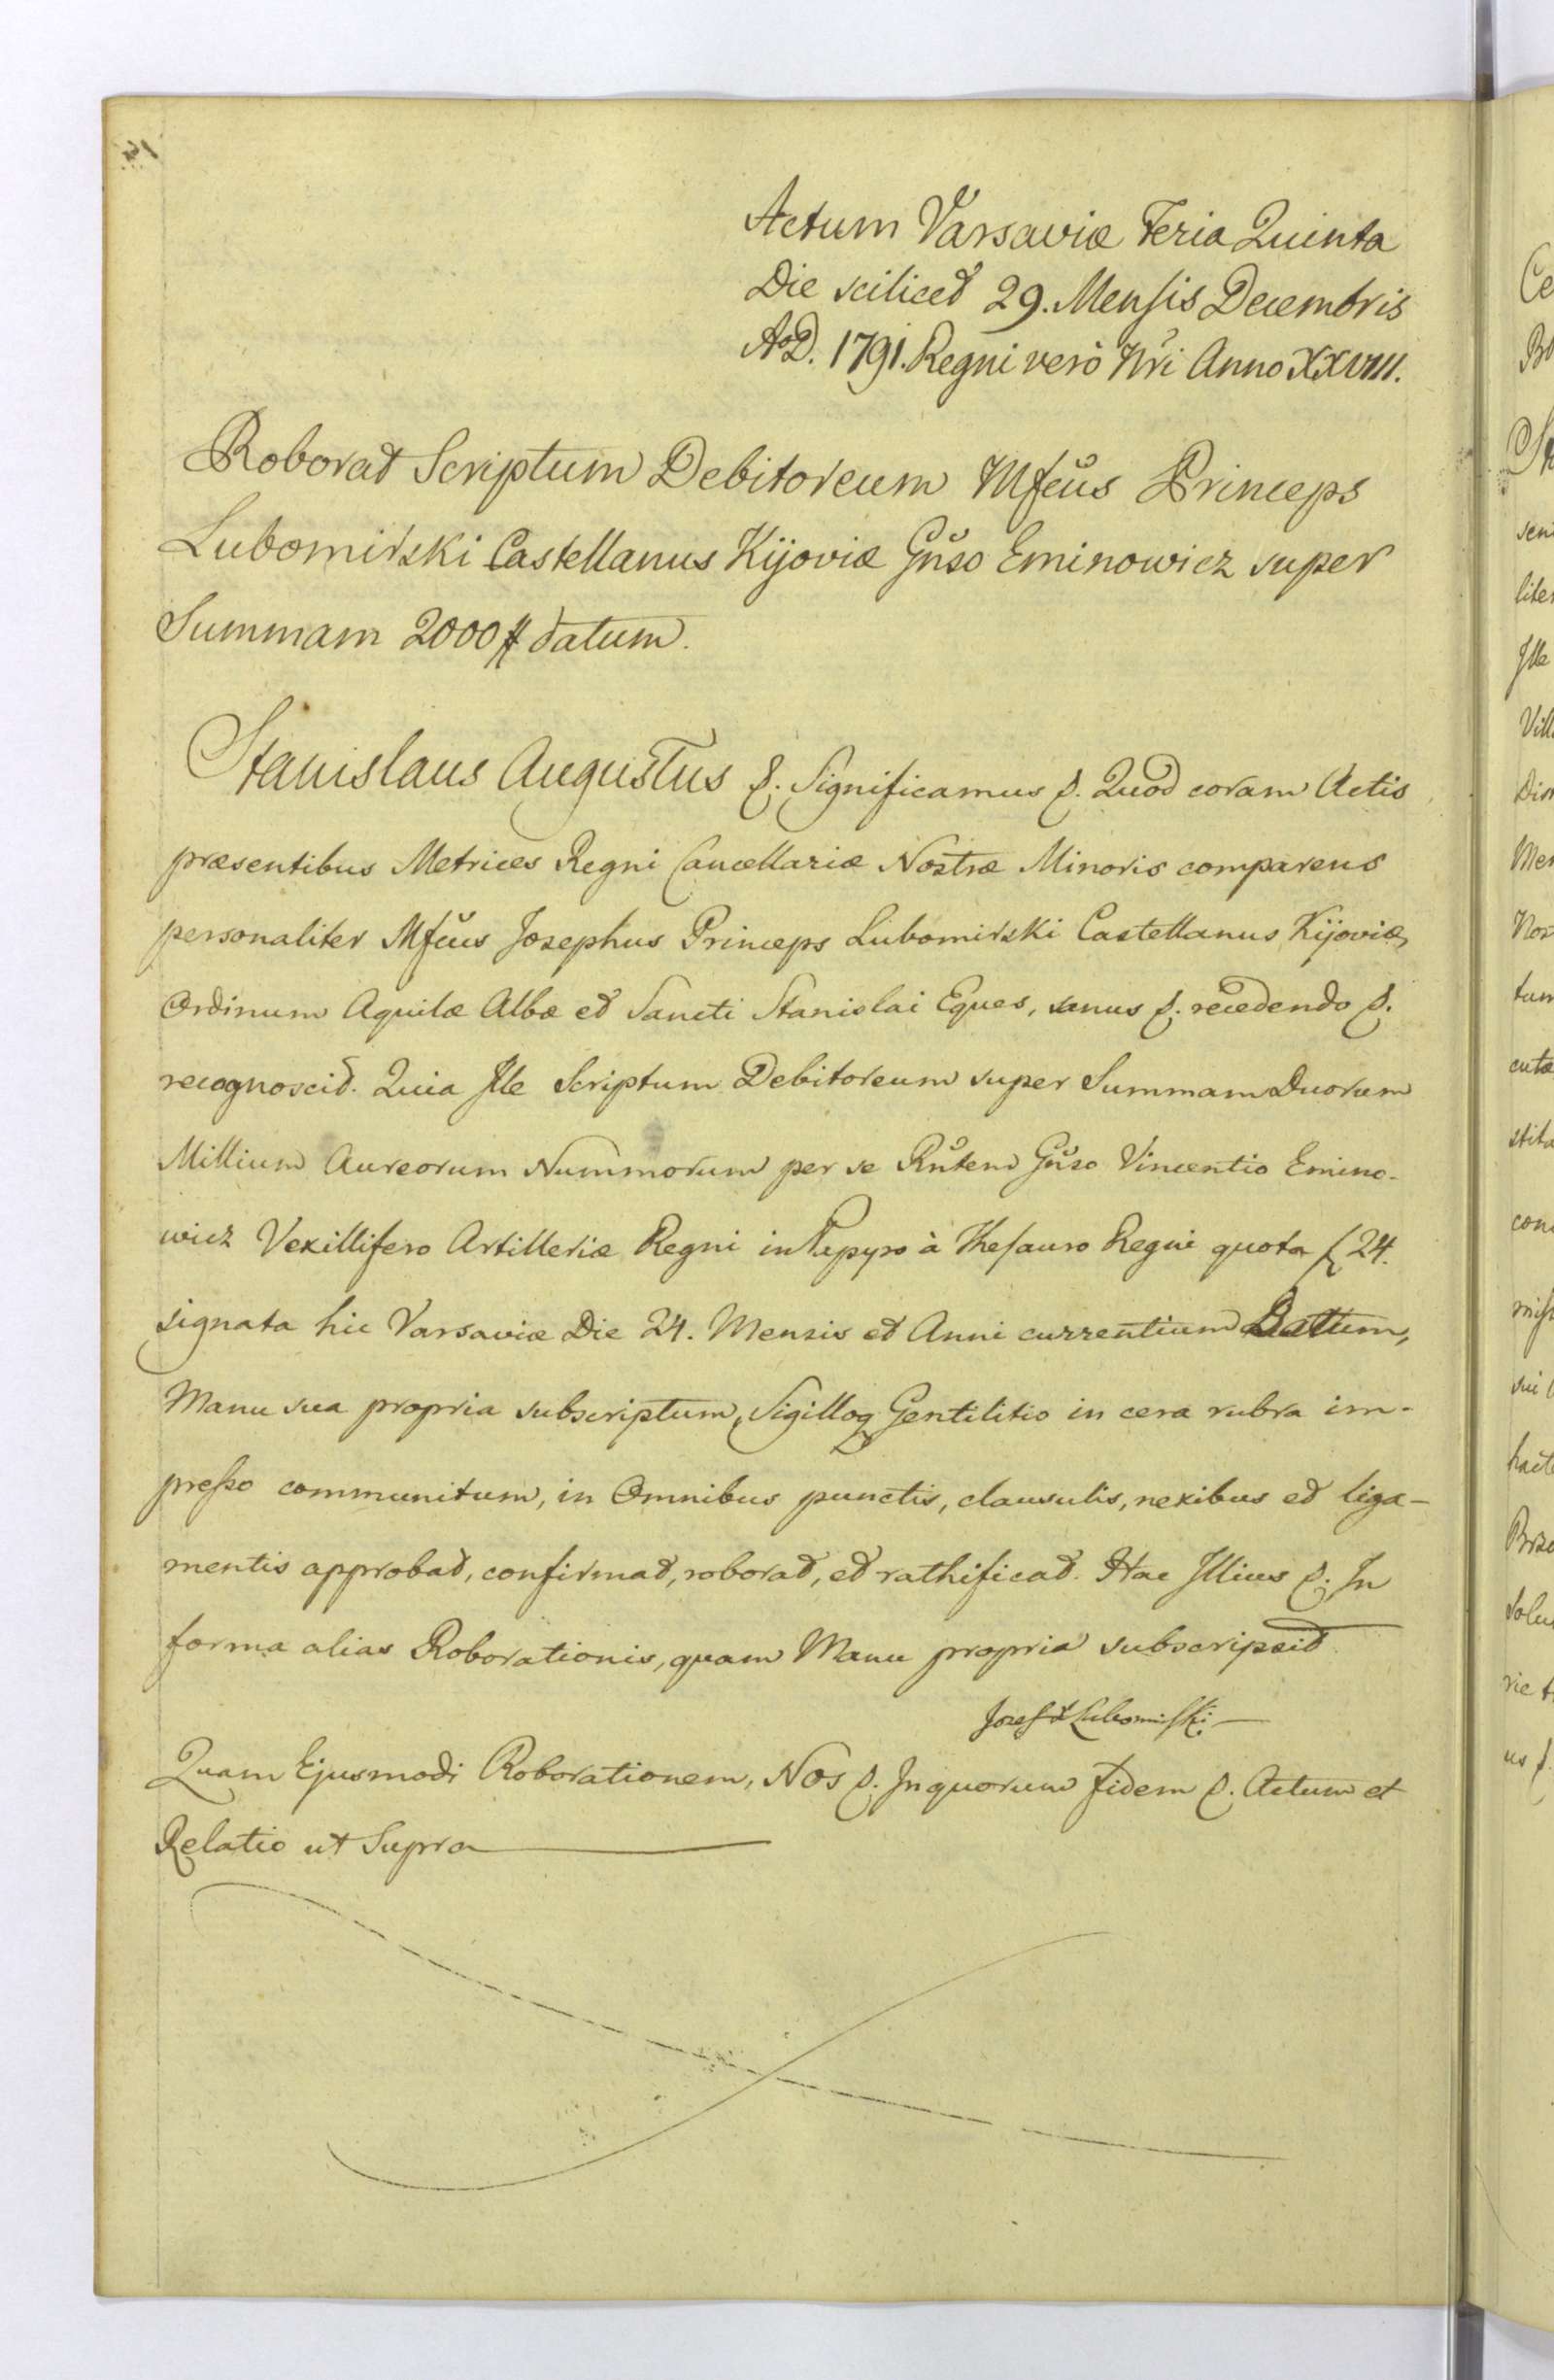 Actum Varsaviæ Feria Quinta
Die scilicet 29. Mensis Decembris
AoD. 1791. Regni verò Nri Anno XXVIII.
Roborat Scriptum Debitoreum Mfcus Princeps
Lubomirski Castellanus Kijoviæ Gnso Eminowicz super
Summam 2000 # datum.
Stanislaus Augustus &. Significamus &. Quod coram Actis
præsentibus Metrices Regni Cancellariæ Nostræ Minoris comparens
personaliter Mfcus Josephus Princeps Lubomirski Castellanus Kijoviæ,
Ordinum Aquilæ Albæ et Sancti Stanislai Eques, sanus &. recedendo &.
recognoscit. Quia Ille Scriptum Debitoreum super Summam Duorum
Millium Aureorum Nummorum per se Rntem Gnso Vincentio Emino-
wicz Vexillifero Artilleriæ Regni in Papyro à Thesauro Regni quota f 24.
signata hic Varsaviæ Die 24. Mensis et Anni currentium Dattum,
Manu sua propria subscriptum, Sigilloq Gentilitio in cera rubra im-
presso communitum, in Omnibus punctis, clausulis, nexibus et liga-
mentis approbat, confirmat, roborat, et rathificat. Hac Illius &. In
forma alias Roborationis, quam Manu propria subscripsit
Jozef X Lubomirski
Quam Ejusmodi Roborationem, Nos &. In quorum fidem &. Actum et
Relatio ut Supra